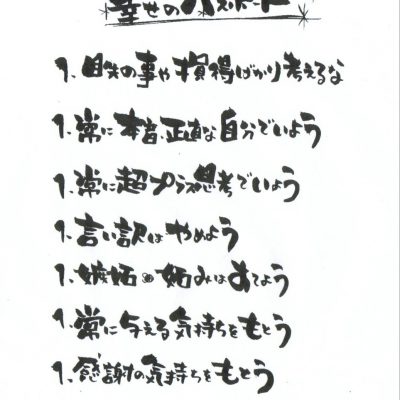 幸せのパスポート
1、目先の事や損得ばかり考えるな
1、常に本音、正直な自分でいよう
1、常に超プラス思考でいよう
1、言い訳はやめよう
1、嫉妬 妬みはすてよう
1、常に与える気持ちをもとう
1、感謝の気持ちをもとう